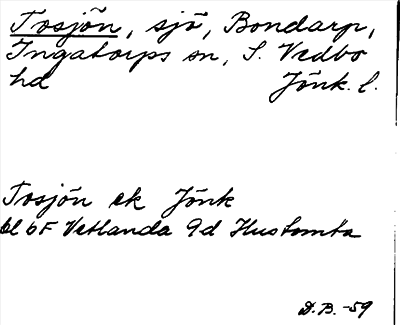 Tosjön, sjö, Bondarp,
Ingatorps sn, S. Vedbo
hd Jönk. l.
Tosjön ek Jönk
bl 6F Vetlanda 9d Hustomta
D.B. -59